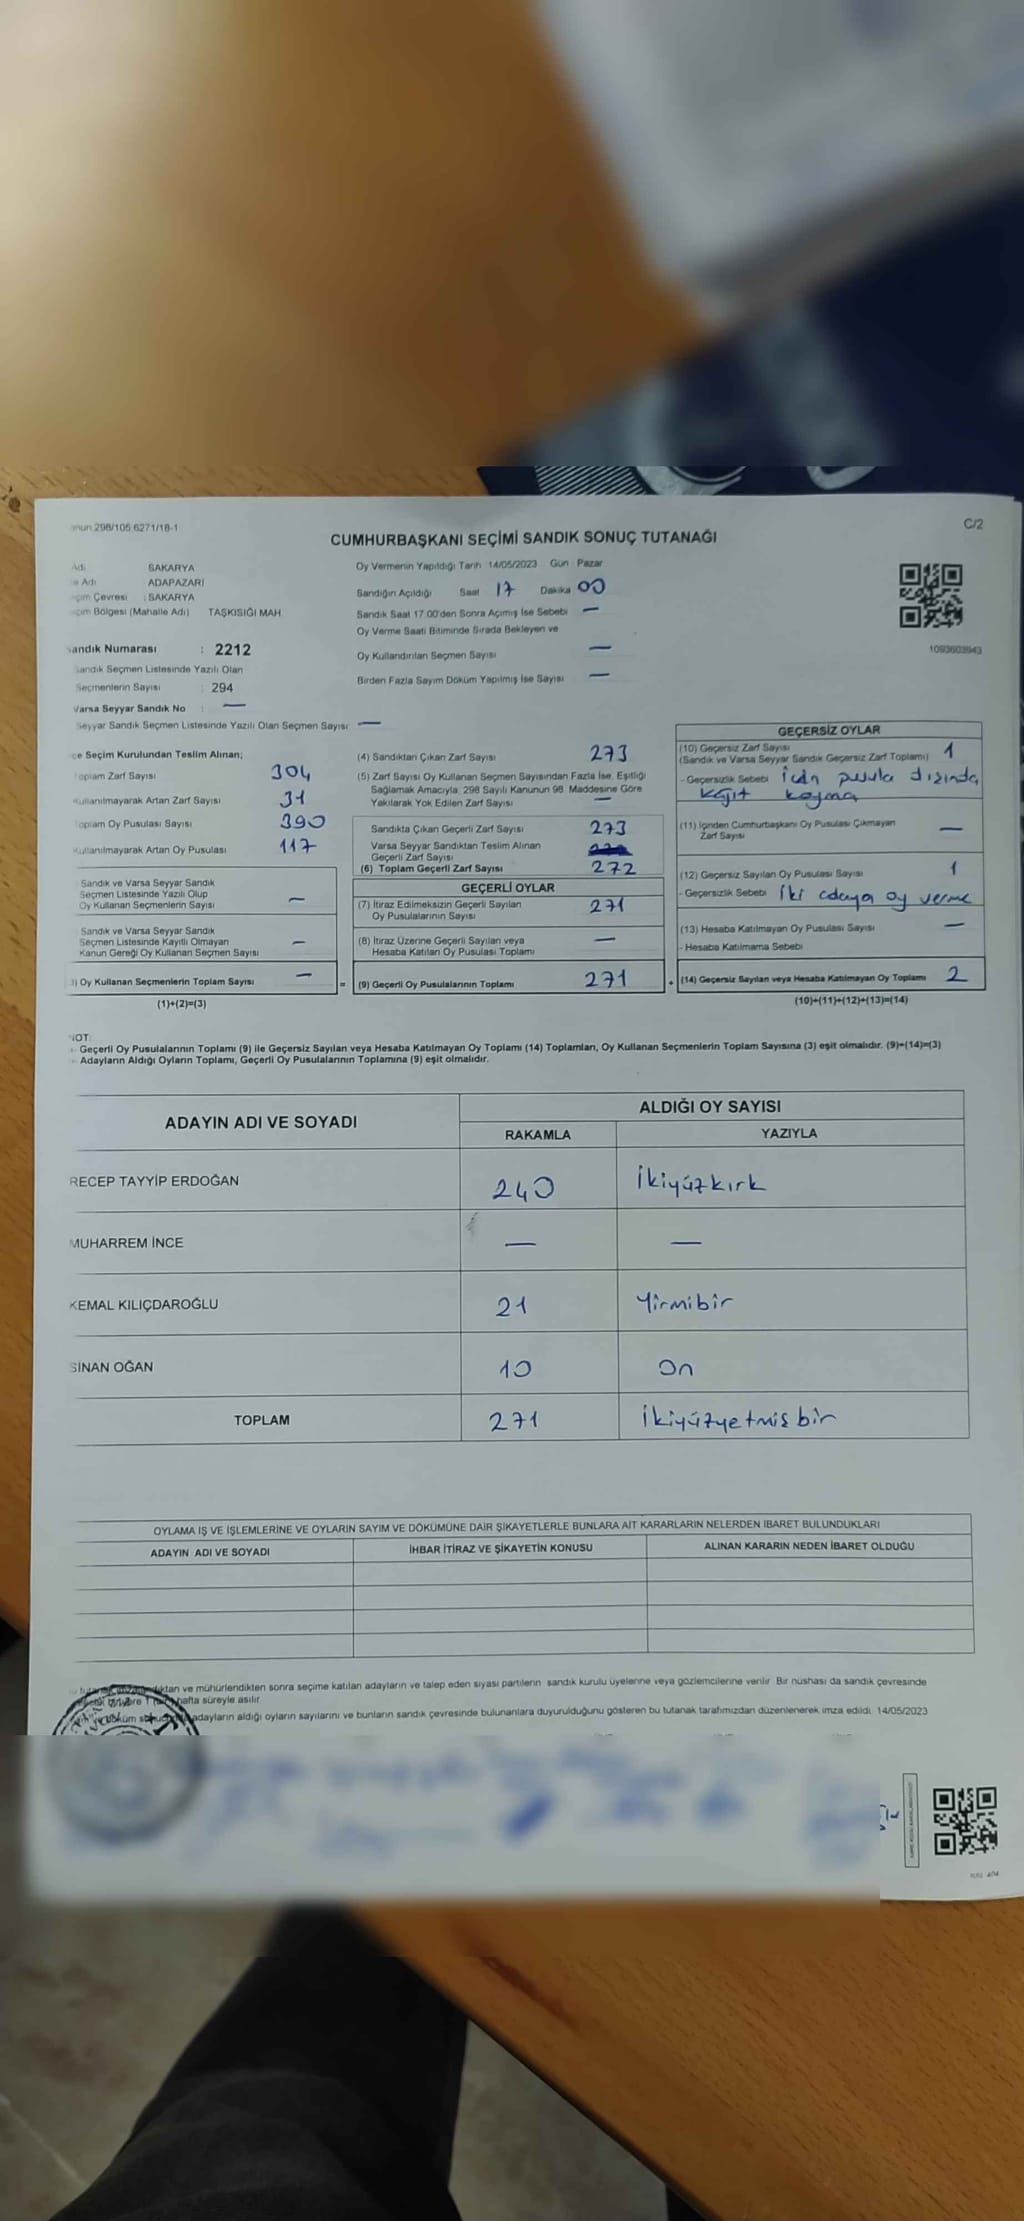 298/105,6271/18-1
C/2
CUMHURBAŞKANI SEÇİMİ SANDIK SONUÇ TUTANAĞI
Adı SAKARYA
Adı ADAPAZARI
Çevresi : SAKARYA
Bölgesi (Mahalle Adı) TAŞKISIĞI MAH.
Sandık Numarası : 2212
Sandık Seçmen Listesinde Yazılı Olan
Seçmenlerin Sayısı : 294
Varsa Seyyar Sandık No : —
Seyyar Sandık Seçmen Listesinde Yazılı Olan Seçmen Sayısı —
Oy Vermenin Yapıldığı Tarih 14/05/2023 Gün Pazar
Sandığın Açıldığı Saat 17 Dakika 00
Sandık Saat 17:00'den Sonra Açımış İse Sebebi —
Oy Verme Saati Bitiminde Sırada Bekleyen ve
Oy Kullandırılan Seçmen Sayısı —
Birden Fazla Sayım Döküm Yapılmış İse Sayısı —
1093603943
Seçim Kurulundan Teslim Alınan;
Toplam Zarf Sayısı 304
Kullanılmayarak Artan Zarf Sayısı 31
Toplam Oy Pusulası Sayısı 390
Kullanılmayarak Artan Oy Pusulası 117
Sandık ve Varsa Seyyar Sandık
Seçmen Listesinde Yazılı Olup
Oy Kullanan Seçmenlerin Sayısı —
Sandık ve Varsa Seyyar Sandık
Seçmen Listesinde Kayıtlı Olmayan
Kanun Gereği Oy Kullanan Seçmen Sayısı —
Oy Kullanan Seçmenlerin Toplam Sayısı —
(1)+(2)=(3)
(4) Sandıktan Çıkan Zarf Sayısı 273
(5) Zarf Sayısı Oy Kullanan Seçmen Sayısından Fazla İse, Eşitliği
Sağlamak Amacıyla, 298 Sayılı Kanunun 98. Maddesine Göre
Yakılarak Yok Edilen Zarf Sayısı —
Sandıkta Çıkan Geçerli Zarf Sayısı 273
Varsa Seyyar Sandıktan Teslim Alınan
Geçerli Zarf Sayısı
(6) Toplam Geçerli Zarf Sayısı 272
GEÇERLİ OYLAR
(7) İtiraz Edilmeksizin Geçerli Sayılan
Oy Pusulalarının Sayısı 271
(8) İtiraz Üzerine Geçerli Sayılan veya
Hesaba Katılan Oy Pusulası Toplamı —
= (9) Geçerli Oy Pusulalarının Toplamı 271
GEÇERSİZ OYLAR
(10) Geçersiz Zarf Sayısı
(Sandık ve Varsa Seyyar Sandık Geçersiz Zarf Toplamı) 1
- Geçersizlik Sebebi pusula dışında
kağıt koyma
(11) İçinden Cumhurbaşkanı Oy Pusulası Çıkmayan
Zarf Sayısı —
(12) Geçersiz Sayılan Oy Pusulası Sayısı 1
- Geçersizlik Sebebi İki adaya oy verme
(13) Hesaba Katılmayan Oy Pusulası Sayısı —
- Hesaba Katılmama Sebebi
+ (14) Geçersiz Sayılan veya Hesaba Katılmayan Oy Toplamı 2
(10)+(11)+(12)+(13)=(14)
NOT:
Geçerli Oy Pusulalarının Toplamı (9) ile Geçersiz Sayılan veya Hesaba Katılmayan Oy Toplamı (14) Toplamları, Oy Kullanan Seçmenlerin Toplam Sayısına (3) eşit olmalıdır. (9)+(14)=(3)
Adayların Aldığı Oyların Toplamı, Geçerli Oy Pusulalarının Toplamına (9) eşit olmalıdır.
ADAYIN ADI VE SOYADI ALDIĞI OY SAYISI
RAKAMLA YAZIYLA
RECEP TAYYİP ERDOĞAN 240 İkiyüzkırk
MUHARREM İNCE — —
KEMAL KILIÇDAROĞLU 21 Yirmibir
SİNAN OĞAN 10 On
TOPLAM 271 İkiyüzyetmişbir
OYLAMA İŞ VE İŞLEMLERİNE VE OYLARIN SAYIM VE DÖKÜMÜNE DAİR ŞİKAYETLERLE BUNLARA AİT KARARLARIN NELERDEN İBARET BULUNDUKLARI
ADAYIN ADI VE SOYADI İHBAR İTİRAZ VE ŞİKAYETİN KONUSU ALINAN KARARIN NEDEN İBARET OLDUĞU
ve mühürlendikten sonra seçime katılan adayların ve talep eden siyasi partilerin sandık kurulu üyelerine veya gözlemcilerine verilir. Bir nüshası da sandık çevresinde
hafta süreyle asılır.
adayların aldığı oyların sayılarını ve bunların sandık çevresinde bulunanlara duyurulduğunu gösteren bu tutanak tarafımızdan düzenlenerek imza edildi. 14/05/2023